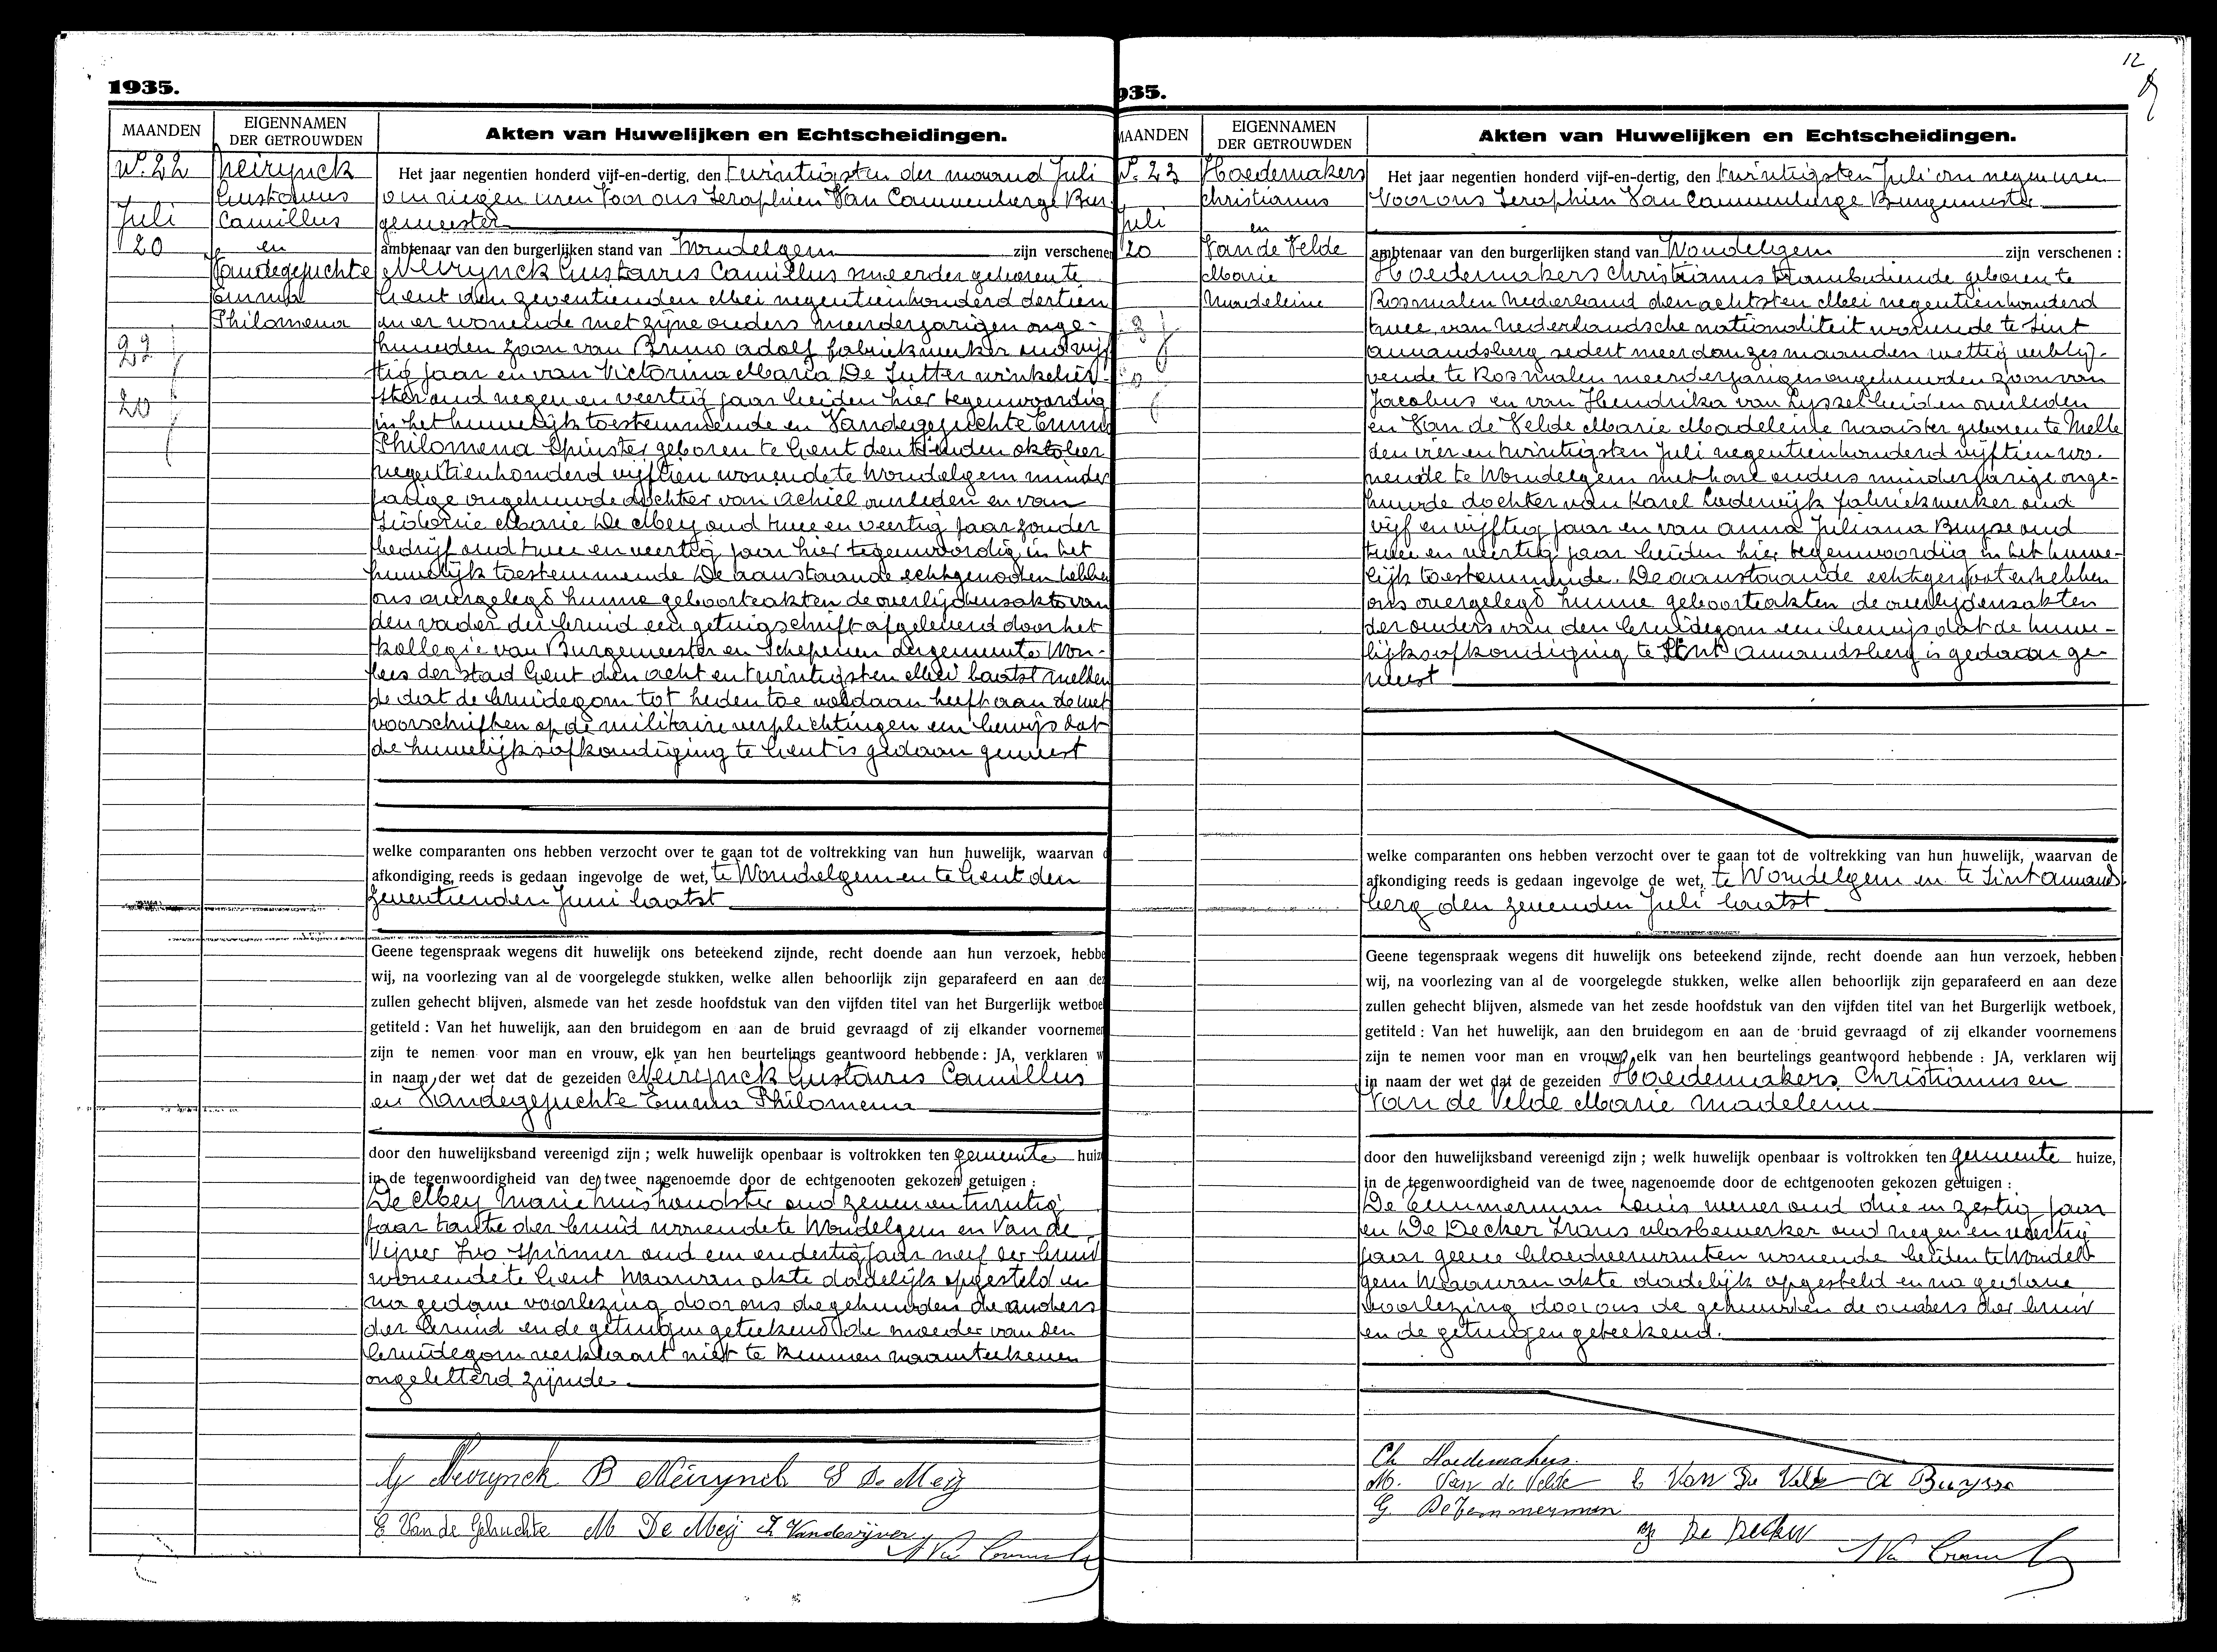 1935.
MAANDEN
EIGENNAMEN
DER GETROUWDEN
Akten van Huwelijken en Echtscheidingen.
N°. 22
Juli
20
Neirynck
Gustavus
Camillus
en
Vandegejuchte
Emma
Philomena
22
20
Het jaar negentien honderd vijf-en-dertig, den twintigsten der maand Juli
om negen uren Voor ons Seraphien Van Cauwenberge Bur-
gemeester
ambtenaar van den burgerlijken stand van Wondelgem zijn verschenen
Neirynck Gustavus Camillus geboren te
Gent den zeventienden Mei negentienhonderd dertien
en er wonende met zijne ouders minderjarigen onge-
huwden zoon van Bruno Adolf fabriekwerker oud vijf
tig jaar en van Victorina Maria De Sutter winkelier
ster oud negen en veertig jaar beiden hier tegenwoordig
in het huwelijk toestemmende en Vandegejuchte Emma
Philomena Spinster geboren te Gent den tienden oktober
negentienhonderd vijftien wonende te Wondelgem minder
jarige ongehuwde dochter van Achiel overleden en van
Marie De Meij oud twee en veertig jaar zonder
bedrijf oud twee en veertig jaar hier tegenwoordig in het
huwelijk toestemmende De aanstaande echtgenooten hebben
ons overgelegd hunne geboorteakten de overlijdensakte van
den vader der bruid een getuigschrift afgeleverd door het
kollegie van Burgemeester en Schepenen der gemeente Won-
der stad Gent den acht en twintigsten Mei laatst melden
de dat de bruidegom tot heden toe voldaan heeft aan de wet
voorschriften op de militaire verplichtingen een bewijs dat
de huwelijksafkondiging te Gent is gedaan geweest
welke comparanten ons hebben verzocht over te gaan tot de voltrekking van hun huwelijk, waarvan d
afkondiging reeds is gedaan ingevolge de wet, te Wondelgem en te Gent den
zeventienden Juni laatst
Geene tegenspraak wegens dit huwelijk ons beteekend zijnde, recht doende aan hun verzoek, hebbe
wij, na voorlezing van al de voorgelegde stukken, welke allen behoorlijk zijn geparafeerd en aan de
zullen gehecht blijven, alsmede van het zesde hoofdstuk van den vijfden titel van het Burgerlijk wetboe
getiteld : Van het huwelijk, aan den bruidegom en aan de bruid gevraagd of zij elkander voorneme
zijn te nemen voor man en vrouw, elk van hen beurtelings geantwoord hebbende : JA, verklaren w
in naam der wet dat de gezeiden Neirynck Gustavus Camillus
en Vandegejuchte Emma Philomena
door den huwelijksband vereenigd zijn ; welk huwelijk openbaar is voltrokken ten gemeente huiz
in de tegenwoordigheid van de twee nagenoemde door de echtgenooten gekozen getuigen :
De Meij Marie huishoudster oud zeven en twintig
jaar tante der bruid wonende te Wondelgem en Van de
Vijver Ivo spinner oud een en dertig jaar neef der bruid
wonende te Gent Waarvan akte dadelijk opgesteld en
na gedane voorlezing door ons de gehuwden de ouders
der bruid en de getuigen geteekend de moeder van den
bruidegom verklaart niet te kunnen naamteekenen
ongeletterd zijnde.
G Neirynck B Neirynck S De Meij
E Van de Gehuchte M De Meij I Vandevijver
935.
12
MAANDEN
EIGENNAMEN
DER GETROUWDEN
Akten van Huwelijken en Echtscheidingen.
N°. 23
Juli
20
Hoedemakers
Christianus
en
Van de Velde
Marie
Madeleine
Het jaar negentien honderd vijf-en-dertig, den twintigsten Juli om negen uren
Voor ons Seraphien Van Cauwenberge Burgemeester
ambtenaar van den burgerlijken stand van Wondelgem zijn verschenen :
Hoedemakers Christianus trambediende geboren te
Rosmalen Nederland den achtsten Mei negentienhonderd
twee van Nederlandsche nationaliteit wonende te Sint
Amandsberg sedert meer dan zes maanden wettig verblij-
vende te Rosmalen meerderjarigen ongehuwden zoon van
Jacobus en van Hendrika van Lyssel beiden overleden
en Van de Velde Marie Madeleine naaister geboren te Melle
den vier en twintigsten Juli negentienhonderd vijftien wo-
nende te Wondelgem met hare ouders minderjarige onge-
huwde dochter van Karel Lodewijk fabriekwerker oud
vijf en vijftig jaar en van Anna Juliana Buysse oud
twee en veertig jaar beiden hier tegenwoordig in het huwe-
lijk toestemmende. De aanstaande echtgenooten hebben
ons overgelegd hunne geboorteakten de overlijdensakten
der ouders van den bruidegom een bewijs dat de huwe-
lijksafkondiging te Sint Amandsberg is gedaan ge-
weest
welke comparanten ons hebben verzocht over te gaan tot de voltrekking van hun huwelijk, waarvan de
afkondiging reeds is gedaan ingevolge de wet, te Wondelgem en te Sint Amands
berg den zevenden Juli laatst
Geene tegenspraak wegens dit huwelijk ons beteekend zijnde, recht doende aan hun verzoek, hebben
wij, na voorlezing van al de voorgelegde stukken, welke allen behoorlijk zijn geparafeerd en aan deze
zullen gehecht blijven, alsmede van het zesde hoofdstuk van den vijfden titel van het Burgerlijk wetboek,
getiteld : Van het huwelijk, aan den bruidegom en aan de bruid gevraagd of zij elkander voornemens
zijn te nemen voor man en vrouw, elk van hen beurtelings geantwoord hebbende : JA, verklaren wij
in naam der wet dat de gezeiden Hoedemakers Christianus en
Van de Velde Marie Madeleine
door den huwelijksband vereenigd zijn ; welk huwelijk openbaar is voltrokken ten gemeente huize,
in de tegenwoordigheid van de twee nagenoemde door de echtgenooten gekozen getuigen :
De Temmerman Louis wever oud drie en zestig jaar
en De Decker Frans vlasbewerker oud negen en veertig
jaar geene bloedverwanten wonende beiden te Wondel
gem Waarvan akte dadelijk opgesteld en na gedane
voorlezing door ons de gehuwden de ouders der bruid
en de getuigen geteekend.
Ch Hoedemakers.
M. Van de Velde C Van De Velde A Buysse
G. De Temmerman
De Decker